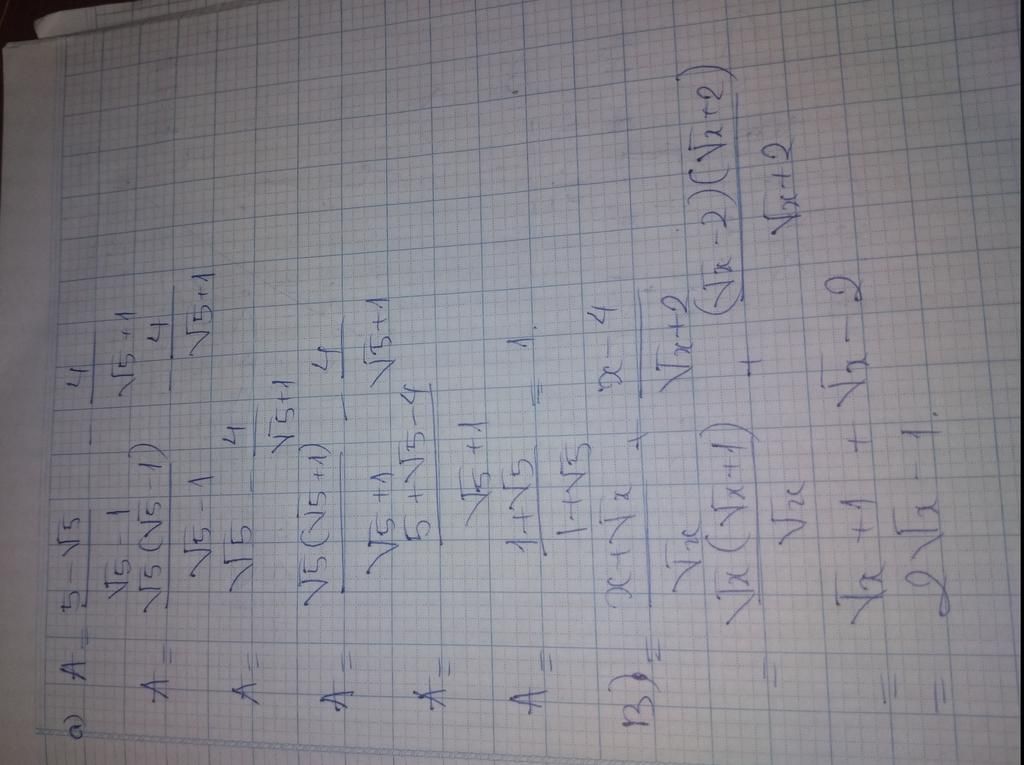 a) A = (5-√5)/(√5-1) - 4/(√5+1)
A = √5(√5-1)/(√5-1) - 4/(√5+1)
A = √5 - 4/(√5+1)
A = √5(√5+1)/(√5+1) - 4/(√5+1)
A = (5+√5-4)/(√5+1)
A = (1+√5)/(1+√5) = 1.
B) = (x+√x)/√x + (x-4)/(√x+2)
= √x(√x+1)/√x + (√x-2)(√x+2)/(√x+2)
= √x+1 + √x-2
= 2√x - 1.